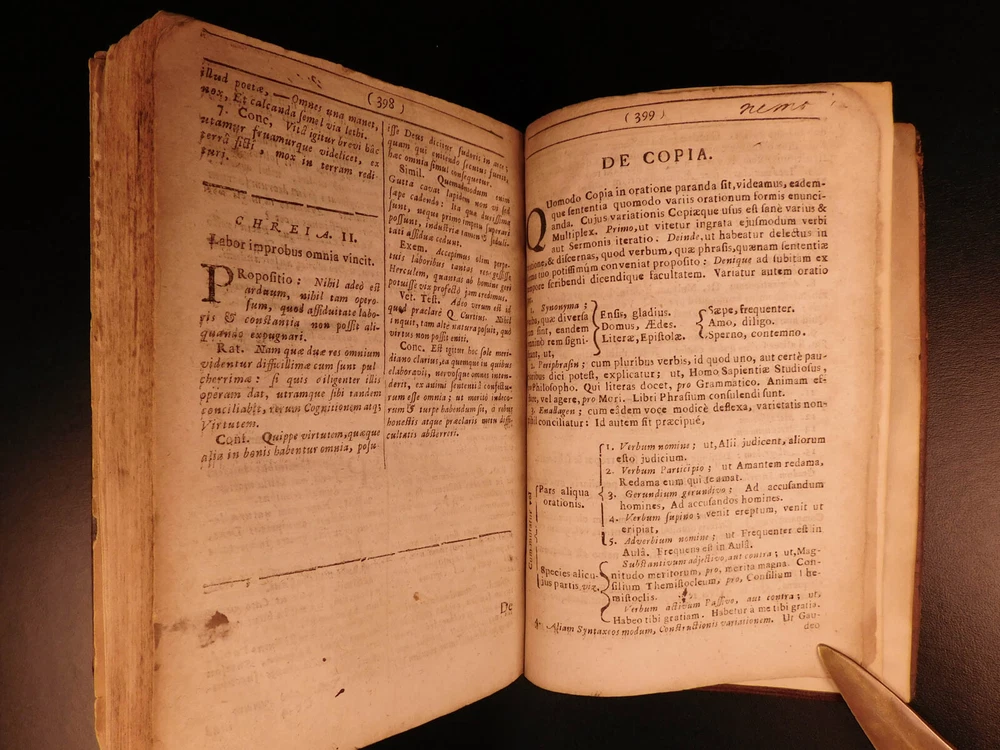 ( 398 )
illud poetæ, — Omnes una manet,
nox, Et calcanda semel via lethi.
7. Conc, Vitâ igitur brevi hâc
utamur fruamurque videlicet, ex
terrâ sicti, mox in terram redi-
turi.
CHREIA. II.
Labor improbus omnia vincit.
PRopositio: Nihil adeò est
arduum, nihil tam opero-
sum, quod assiduitate labo-
ris & constantia non possit ali-
quando expugnari.
Rat. Nam quæ duæ res omnium
videntur difficillimæ cum sunt pul
cherrimæ: si quis diligenter illis
operam dat, utramque sibi tandem
conciliabit, rerum Cognitionem atq;
Virtutem.
Conf. Quippe virtutem, quæque
alia in bonis habentur omnia, posu-
isse Deus dicitur sudoris in arce;
quam qui enitendo secutus fuerit,
hæc omnia simul consequetur.
Simil. Quemadmodum enim
Gutta cavat lapidem non vi sed
sæpe cadendo: Ita quæ durissima
sunt, neque primo impetu superare
possunt, industriæ tamen & sedulitati
tati assiduæ cedunt.
Exem. Accepimus olim perpe-
tuis laboribus tantas res gessisse
Herculem, quantas ab homine geri
potuisse vix profectò jam credimus.
Vet. Test. Adeo verum est id
quod præclarè Q. Curtius. Nihil
inquit, tam altè natura posuit, quò
virtus non possit eniti.
Conc. Est igitur hoc sole meri-
diano clarius, ea quemque in quibus
elaboravit, nervosque omnes inten-
derit, ex animi sententiâ consecutu-
rum esse omnia; ut meritò indeco-
rum & turpe habendum sit, a rebus
honestis atque præclaris metu diffi-
cultatis absterreri.
De
( 399 )
nemo
DE COPIA.
QUomodo Copia in oratione paranda sit, videamus, eadem-
que sententia quomodo variis orationum formis enunci-
anda. Cujus variationis Copiæque usus est sanè varius &
Multiplex. Primo, ut vitetur ingrata ejusmodi verbi
aut Sermonis iteratio. Deinde, ut habeatur delectus in
ratione, & discernas, quod verbum, quæ phrasis, quænam sententiæ
forma tuo potissimum conveniat proposito: Denique ad subitam ex
tempore scribendi dicendique facultatem. Variatur autem oratio
1. Synonyma;
quæ diversa
sint, eandem
omninò rem signifi-
cant, ut,
Ensis, gladius.
Domus, Ædes.
Literæ, Epistolæ.
Sæpe, frequenter.
Amo, diligo.
Sperno, contemno.
2. Periphrasin; cum pluribus verbis, id quod uno, aut certè pau-
cioribus dici potest, explicatur; ut, Homo Sapientiæ Studiosus,
pro Philosopho. Qui literas docet, pro Grammatico. Animam ef-
flare, vel agere, pro Mori. Libri Phrasium consulendi sunt.
3. Enallagen; cum eâdem voce modicè deflexa, varietatis non-
nihil conciliatur: Id autem fit præcipuè,
Pars aliqua
orationis.
1. Verbum nomine; ut, Alii judicent, aliorum
esto judicium.
2. Verbum Participio; ut Amantem redama,
Redama eum qui te amat.
3. Gerundium gerundivo; Ad accusandum
homines, Ad accusandos homines.
4. Verbum supino; venit ereptum, venit ut
eripiat,
5. Adverbium nomine; ut Frequenter est in
Aulâ. Frequens est in Aulâ.
Species alicu-
jus partis, viz.
Substantivum adjectivo, aut contra; ut, Mag-
nitudo meritorum, pro, merita magna. Con-
silium Themistocleum, pro, Consilium The-
mistoclis.
Verbum activum Passivo, aut contra; ut,
Habeo tibi gratiam. Habetur à me tibi gratia.
4. Aliam Syntaxeos modum, Constructionis variationem. Ut Gau-
deo